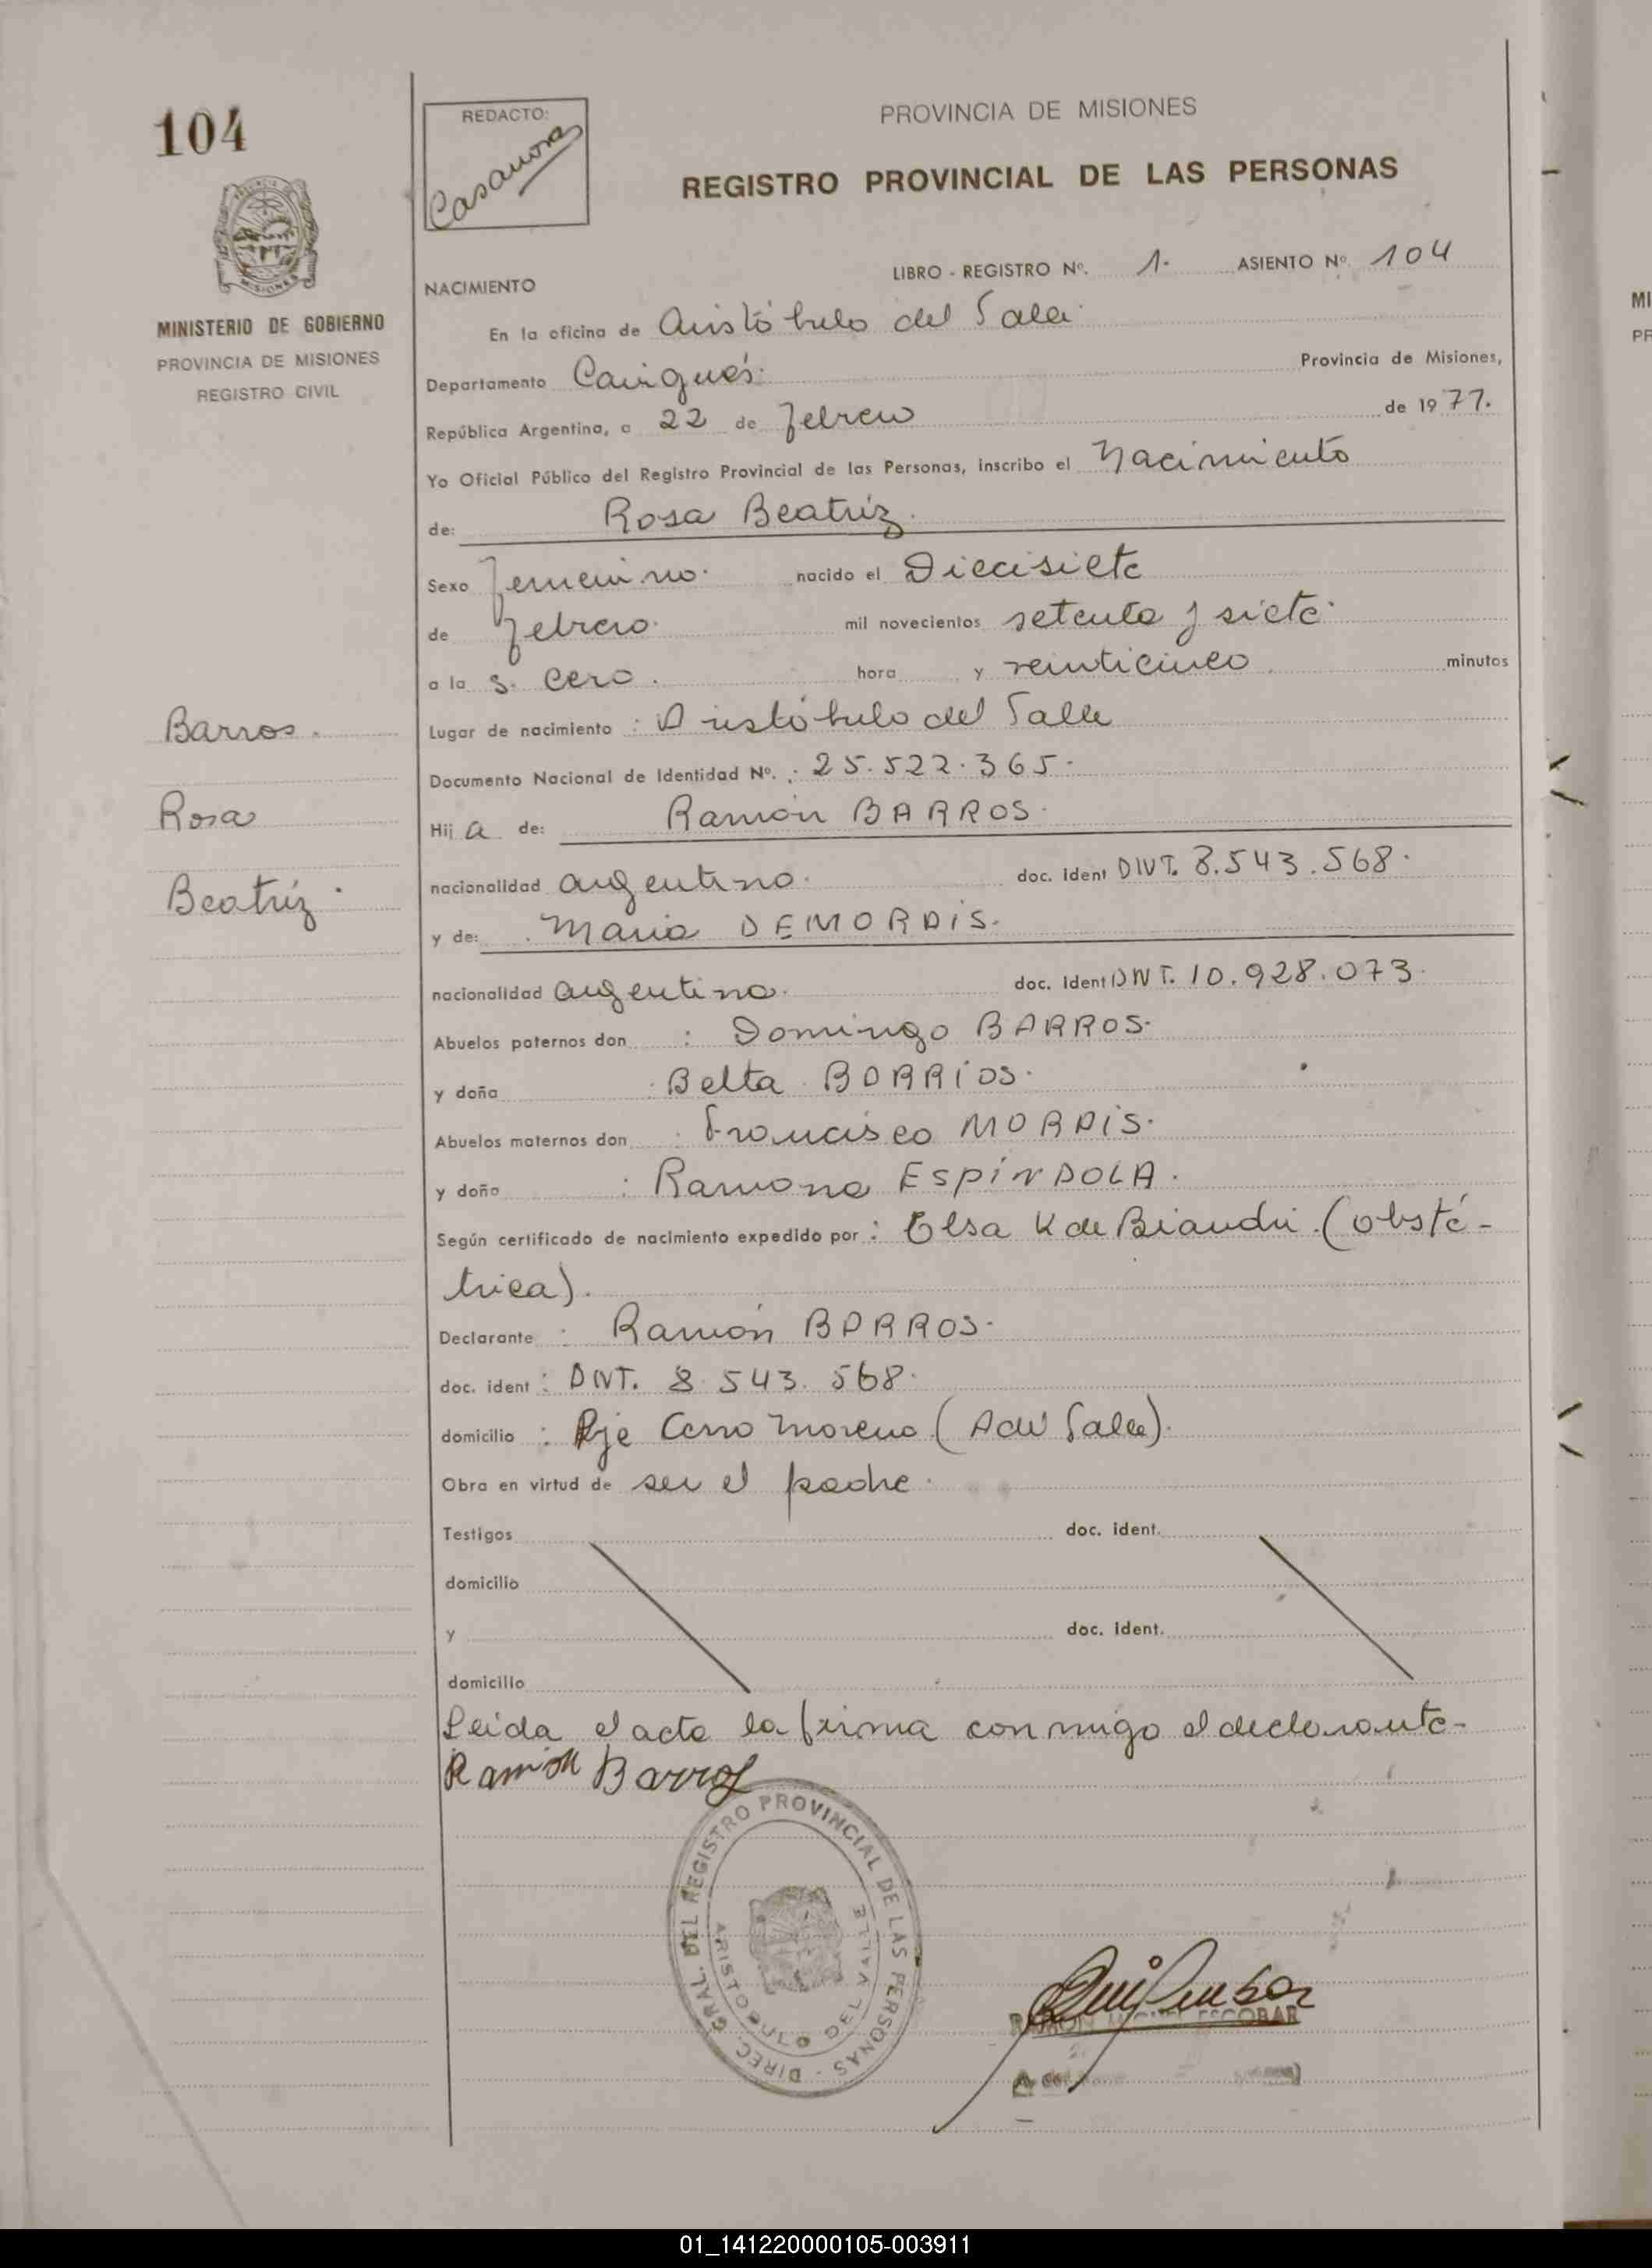 104
REDACTO:
Casanova
PROVINCIA DE MISIONES
REGISTRO PROVINCIAL DE LAS PERSONAS
MINISTERIO DE GOBIERNO
PROVINCIA DE MISIONES
REGISTRO CIVIL
LIBRO - REGISTRO Nº. 1. ASIENTO Nº. 104
NACIMIENTO
En la oficina de Aristóbulo del Valle.
Departamento Cainguás. Provincia de Misiones,
República Argentina, a 22 de febrero de 1977.
Yo Oficial Público del Registro Provincial de las Personas, inscribo el Nacimiento
de: Rosa Beatríz.
Sexo femenino. nacido el Diecisiete
de febrero. mil novecientos setenta y siete.
a la s. cero. hora y veinticinco minutos
Barros.
Rosa
Beatríz.
Lugar de nacimiento : Aristóbulo del Valle
Documento Nacional de Identidad Nº. : 25.522.365.
Hij a de: Ramón BARROS.
nacionalidad argentino. doc. ident DNI. 8.543.568.
y de: Maria DEMORAIS.
nacionalidad argentina. doc. ident DNI. 10.928.073.
Abuelos paternos don : Domingo BARROS.
y doña Belta BARRIOS.
Abuelos maternos don Francisco MORAIS.
y doña : Ramona ESPÍNDOLA.
Según certificado de nacimiento expedido por : Elsa K de Biaudri. (obsté-
trica).
Declarante : Ramón BARROS.
doc. ident : DNI. 8.543.568.
domicilio : Pje Cerro Moreno (A del Valle).
Obra en virtud de ser el padre.
Testigos doc. ident.
domicilio
y doc. ident.
domicilio
Leida el acta la firma con migo el declarante-
Ramón Barros
DIREC. GRAL. DEL REGISTRO PROVINCIAL DE LAS PERSONAS -
ARISTOBULO DEL VALLE
RAMON MIGUEL ESCOBAR
01_141220000105-003911